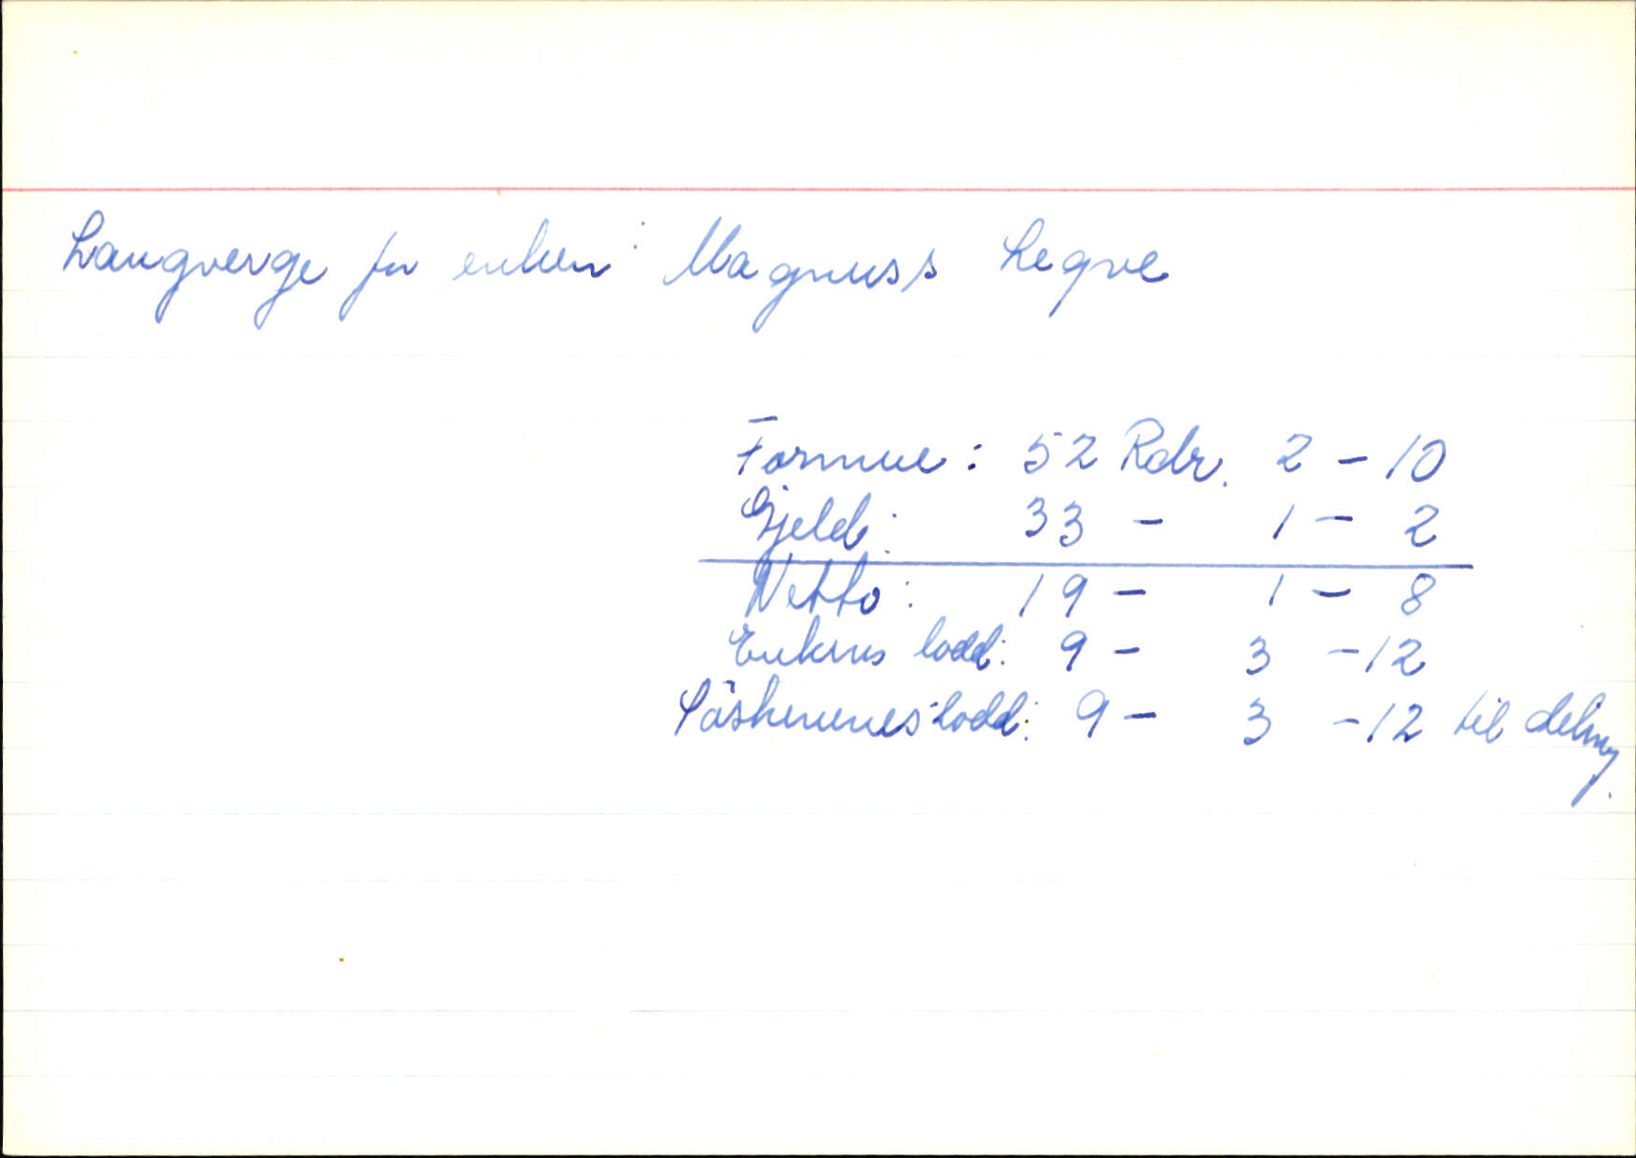 Laugverge for enken: Magnuss Legve
Formue: 52 Rdr. 2 - 10
Gjeld: 33 - 1 - 2
Netto: 19 - 1 - 8
Enkens lodd: 9 - 3 - 12
Söskenenes lodd: 9 - 3 - 12 til deling.